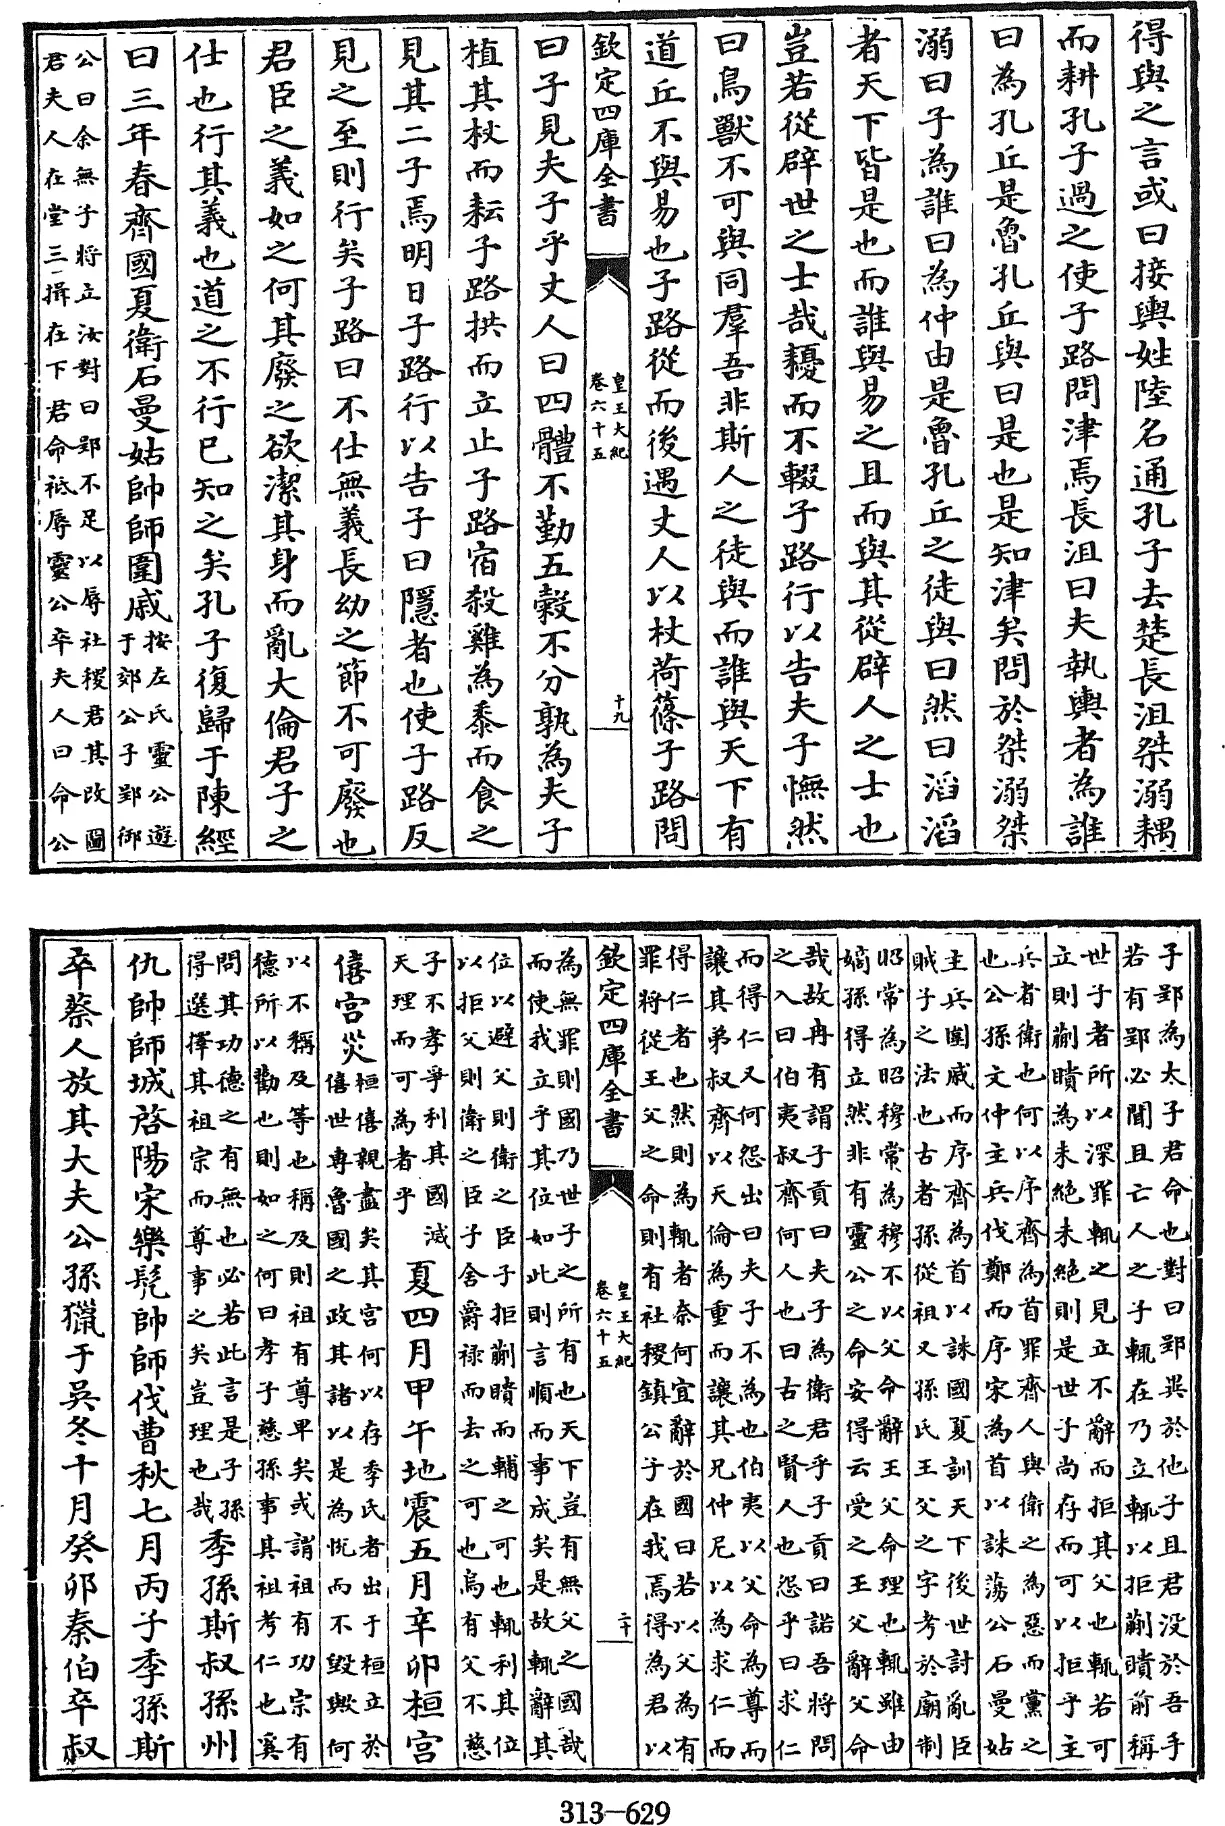 得與之言或曰接輿姓陸名通孔子去楚長沮桀溺耦
而耕孔子過之使子路問津焉長沮曰夫執輿者為誰
曰為孔丘是魯孔丘與曰是也是知津矣問於桀溺桀
溺曰子為誰曰為仲由是魯孔丘之徒與曰然曰滔滔
者天下皆是也而誰與易之且而與其從辟人之士也
豈若從辟世之士哉耰而不輟子路行以告夫子憮然
曰鳥獸不可與同羣吾非斯人之徒與而誰與天下有
道丘不與易也子路從而後遇丈人以杖荷蓧子路問
欽定四庫全書
皇王大紀
卷六十五
十九
曰子見夫子乎丈人曰四體不勤五穀不分孰為夫子
植其杖而耘子路拱而立止子路宿殺雞為黍而食之
見其二子焉明日子路行以告子曰隱者也使子路反
見之至則行矣子路曰不仕無義長幼之節不可廢也
君臣之義如之何其廢之欲潔其身而亂大倫君子之
仕也行其義也道之不行已知之矣孔子復歸于陳經
曰三年春齊國夏衛石曼姑帥師圍戚
按左氏靈公遊
于郊公子郢御
公曰余無子將立汝對曰郢不足以辱社稷君其改圖
君夫人在堂三揖在下君命祗辱靈公卒夫人曰命公
子郢為太子君命也對曰郢異於他子且君没於吾手
若有郢必聞且亡人之子輒在乃立輒以拒蒯聵前稱
世子者所以深罪輒之見立不辭而拒其父也輒若可
立則蒯聵為未絶未絶則是世子尚存而可以拒乎主
兵者衛也何以序齊為首罪齊人與衛之為惡而黨之
也公孫文仲主兵伐鄭而序宋為首以誅蕩公石曼姑
主兵圍戚而序齊為首以誅國夏訓天下後世討亂臣
賊子之法也古者孫從祖又孫氏王父之字考於廟制
昭常為昭穆常為穆不以父命辭王父命理也輒雖由
嫡孫得立然非有靈公之命安得云受之王父辭父命
哉故冉有謂子貢曰夫子為衛君乎子貢曰諾吾將問
之入曰伯夷叔齊何人也曰古之賢人也怨乎曰求仁
而得仁又何怨出曰夫子不為也伯夷以父命為尊而
讓其弟叔齊以天倫為重而讓其兄仲尼以為求仁而
得仁者也然則為輒者奈何宜辭於國曰若以父為有
罪將從王父之命則有社稷鎮公子在我焉得為君以
欽定四庫全書
皇王大紀
卷六十五
二十
為無罪則國乃世子之所有也天下豈有無父之國哉
而使我立乎其位如此則言順而事成矣是故輒辭其
位以避父則衛之臣子拒蒯聵而輔之可也輒利其位
以拒父則衛之臣子舍爵禄而去之可也烏有父不慈
子不孝爭利其國滅
天理而可為者乎
夏四月甲午地震五月辛卯桓宮
僖宮災
桓僖親盡矣其宮何以存季氏者出于桓立於
僖世專魯國之政其諸以是為悦而不毀歟何
以不稱及等也稱及則祖有尊卑矣或謂祖有功宗有
德所以勸也則如之何曰孝子慈孫事其祖考仁也奚
問其功德之有無也必若此言是子孫
得選擇其祖宗而尊事之矣豈理也哉
季孫斯叔孫州
仇帥師城啓陽宋樂髠帥師伐曹秋七月丙子季孫斯
卒蔡人放其大夫公孫獵于吳冬十月癸卯秦伯卒叔
313-629